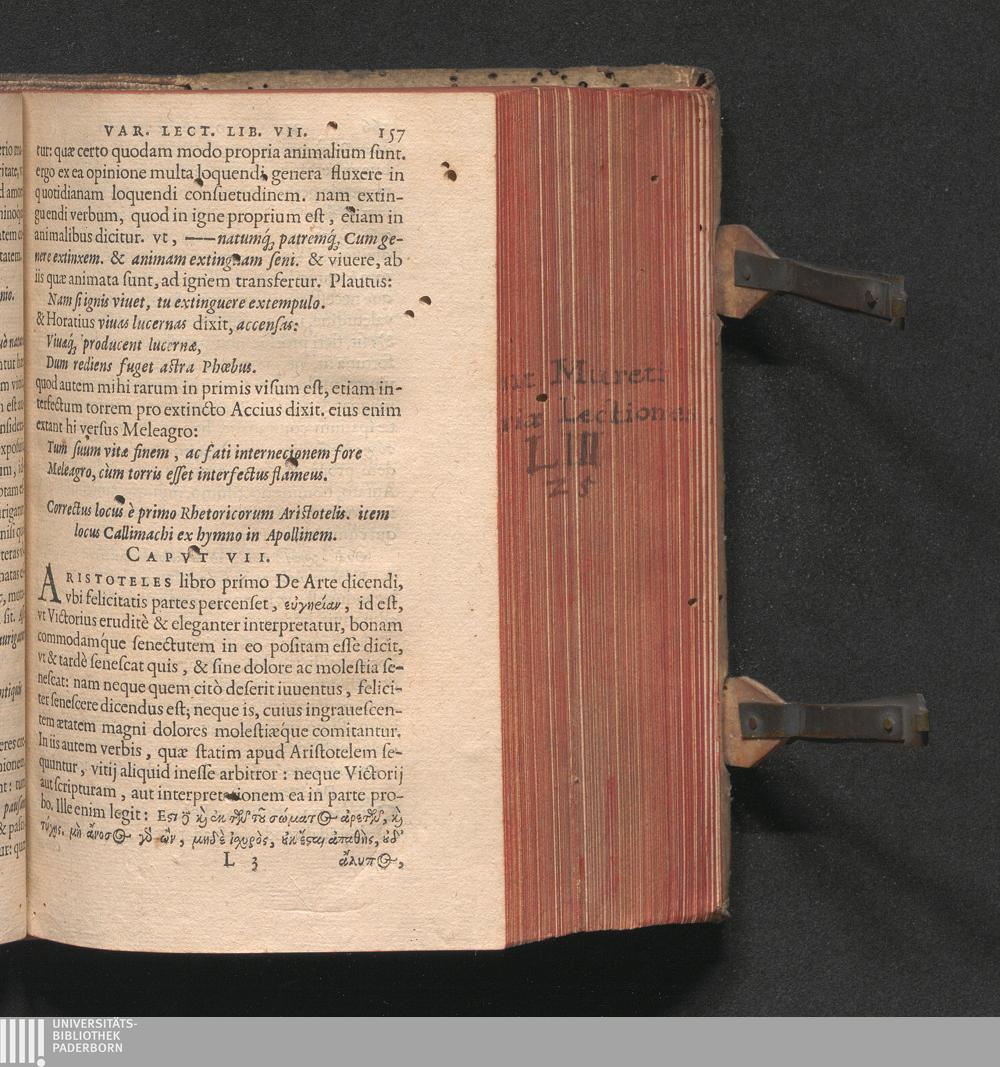 VAR. LECT. LIB. VII. 157
tur: quæ certo quodam modo propria animalium ſunt.
ergo ex ea opinione multa loquendi genera fluxere in
quotidianam loquendi conſuetudinem. nam extin-
guendi verbum, quod in igne proprium eſt, etiam in
animalibus dicitur. vt, —— natumq́; patremq́; Cum ge-
nere extinxem. & animam extinguam ſeni. & viuere, ab
iis quæ animata ſunt, ad ignem transfertur. Plautus:
Nam ſi ignis viuet, tu extinguere extempulo.
& Horatius viuas lucernas dixit, accenſas:
Viuæq́; producent lucernæ,
Dum rediens fuget aſtra Phœbus.
quod autem mihi rarum in primis viſum eſt, etiam in-
terfectum torrem pro extincto Accius dixit. eius enim
extant hi verſus Meleagro:
Tum ſuum vitæ finem, ac fati internecionem fore
Meleagro, cùm torris eſſet interfectus flāmeus.
Correctus locus è primo Rhetoricorum Ariſtotelis. item
locus Callimachi ex hymno in Apollinem.
CAPVT VII.
ARISTOTELES libro primo De Arte dicendi,
vbi felicitatis partes percenſet, εὐγηρίαν, id eſt,
vt Victorius eruditè & eleganter interpretatur, bonam
commodamq́ue ſenectutem in eo poſitam eſſe dicit,
vt & tardè ſeneſcat quis, & ſine dolore ac moleſtia ſe-
neſcat: nam neque quem citò deſerit iuuentus, felici-
ter ſeneſcere dicendus eſt; neque is, cuius ingraueſcen-
tem ætatem magni dolores moleſtiæque comitantur.
In iis autem verbis, quæ ſtatim apud Ariſtotelem ſe-
quuntur, vitij aliquid ineſſe arbitror: neque Victorij
aut ſcripturam, aut interpretationem ea in parte pro-
bo. Ille enim legit: Εςι δὲ καὶ ἐκ τῆς τοῦ σώματος ἀρετῆς, καὶ
τύχης. μὴ ἄνοσος γὸ ὢν, μηδὲ ἰχυρὸς, ἐκ ἔςαι ἀπαθὴς, ἐδ'
L 3 ἄλυπος,
Mureti
Lectiones
L III
25
UNIVERSITÄTS-
BIBLIOTHEK
PADERBORN